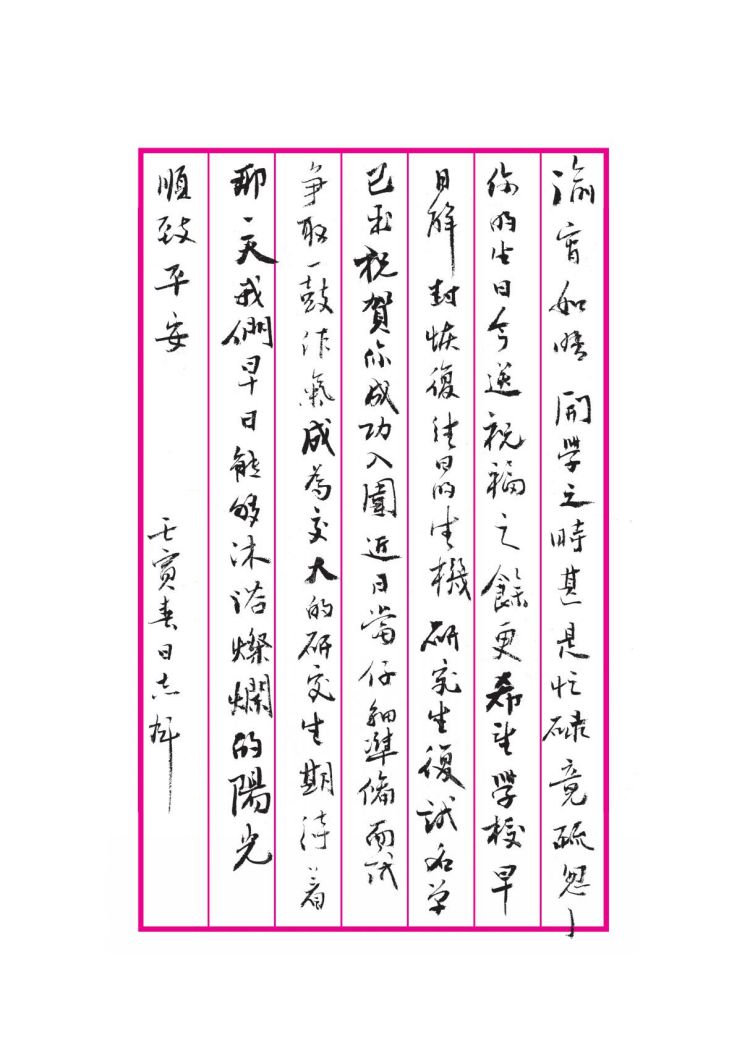 渝宵如晤 開學之時甚是忙碌竟疏忽了
你的生日今送祝福之餘更希望學校早
日解封恢復往日的生機 研究生復試名單
已出祝賀你成功入圍近日當仔細準備面試
爭取一鼓作氣成為交大的研究生期待着
那一天我們早日能够沐浴燦爛的陽光
順致平安 壬寅春日志